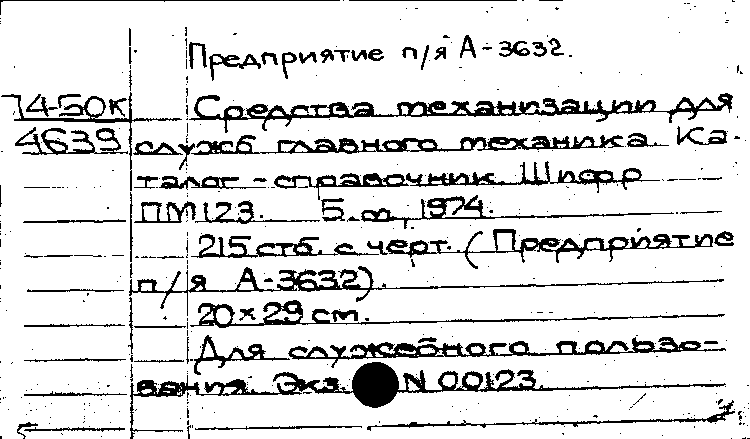 Предприятие п/я А-3632.
74-50К Средства механизации для
4639 служб главного механика. Ка-
талог-справочник. Шифр
ПМ123. Б.м., 1974.
215 стб. с черт. (Предприятие
п/я А-3632).
20×29 см.
Для служебного пользо-
вания. Экз. N 00123.